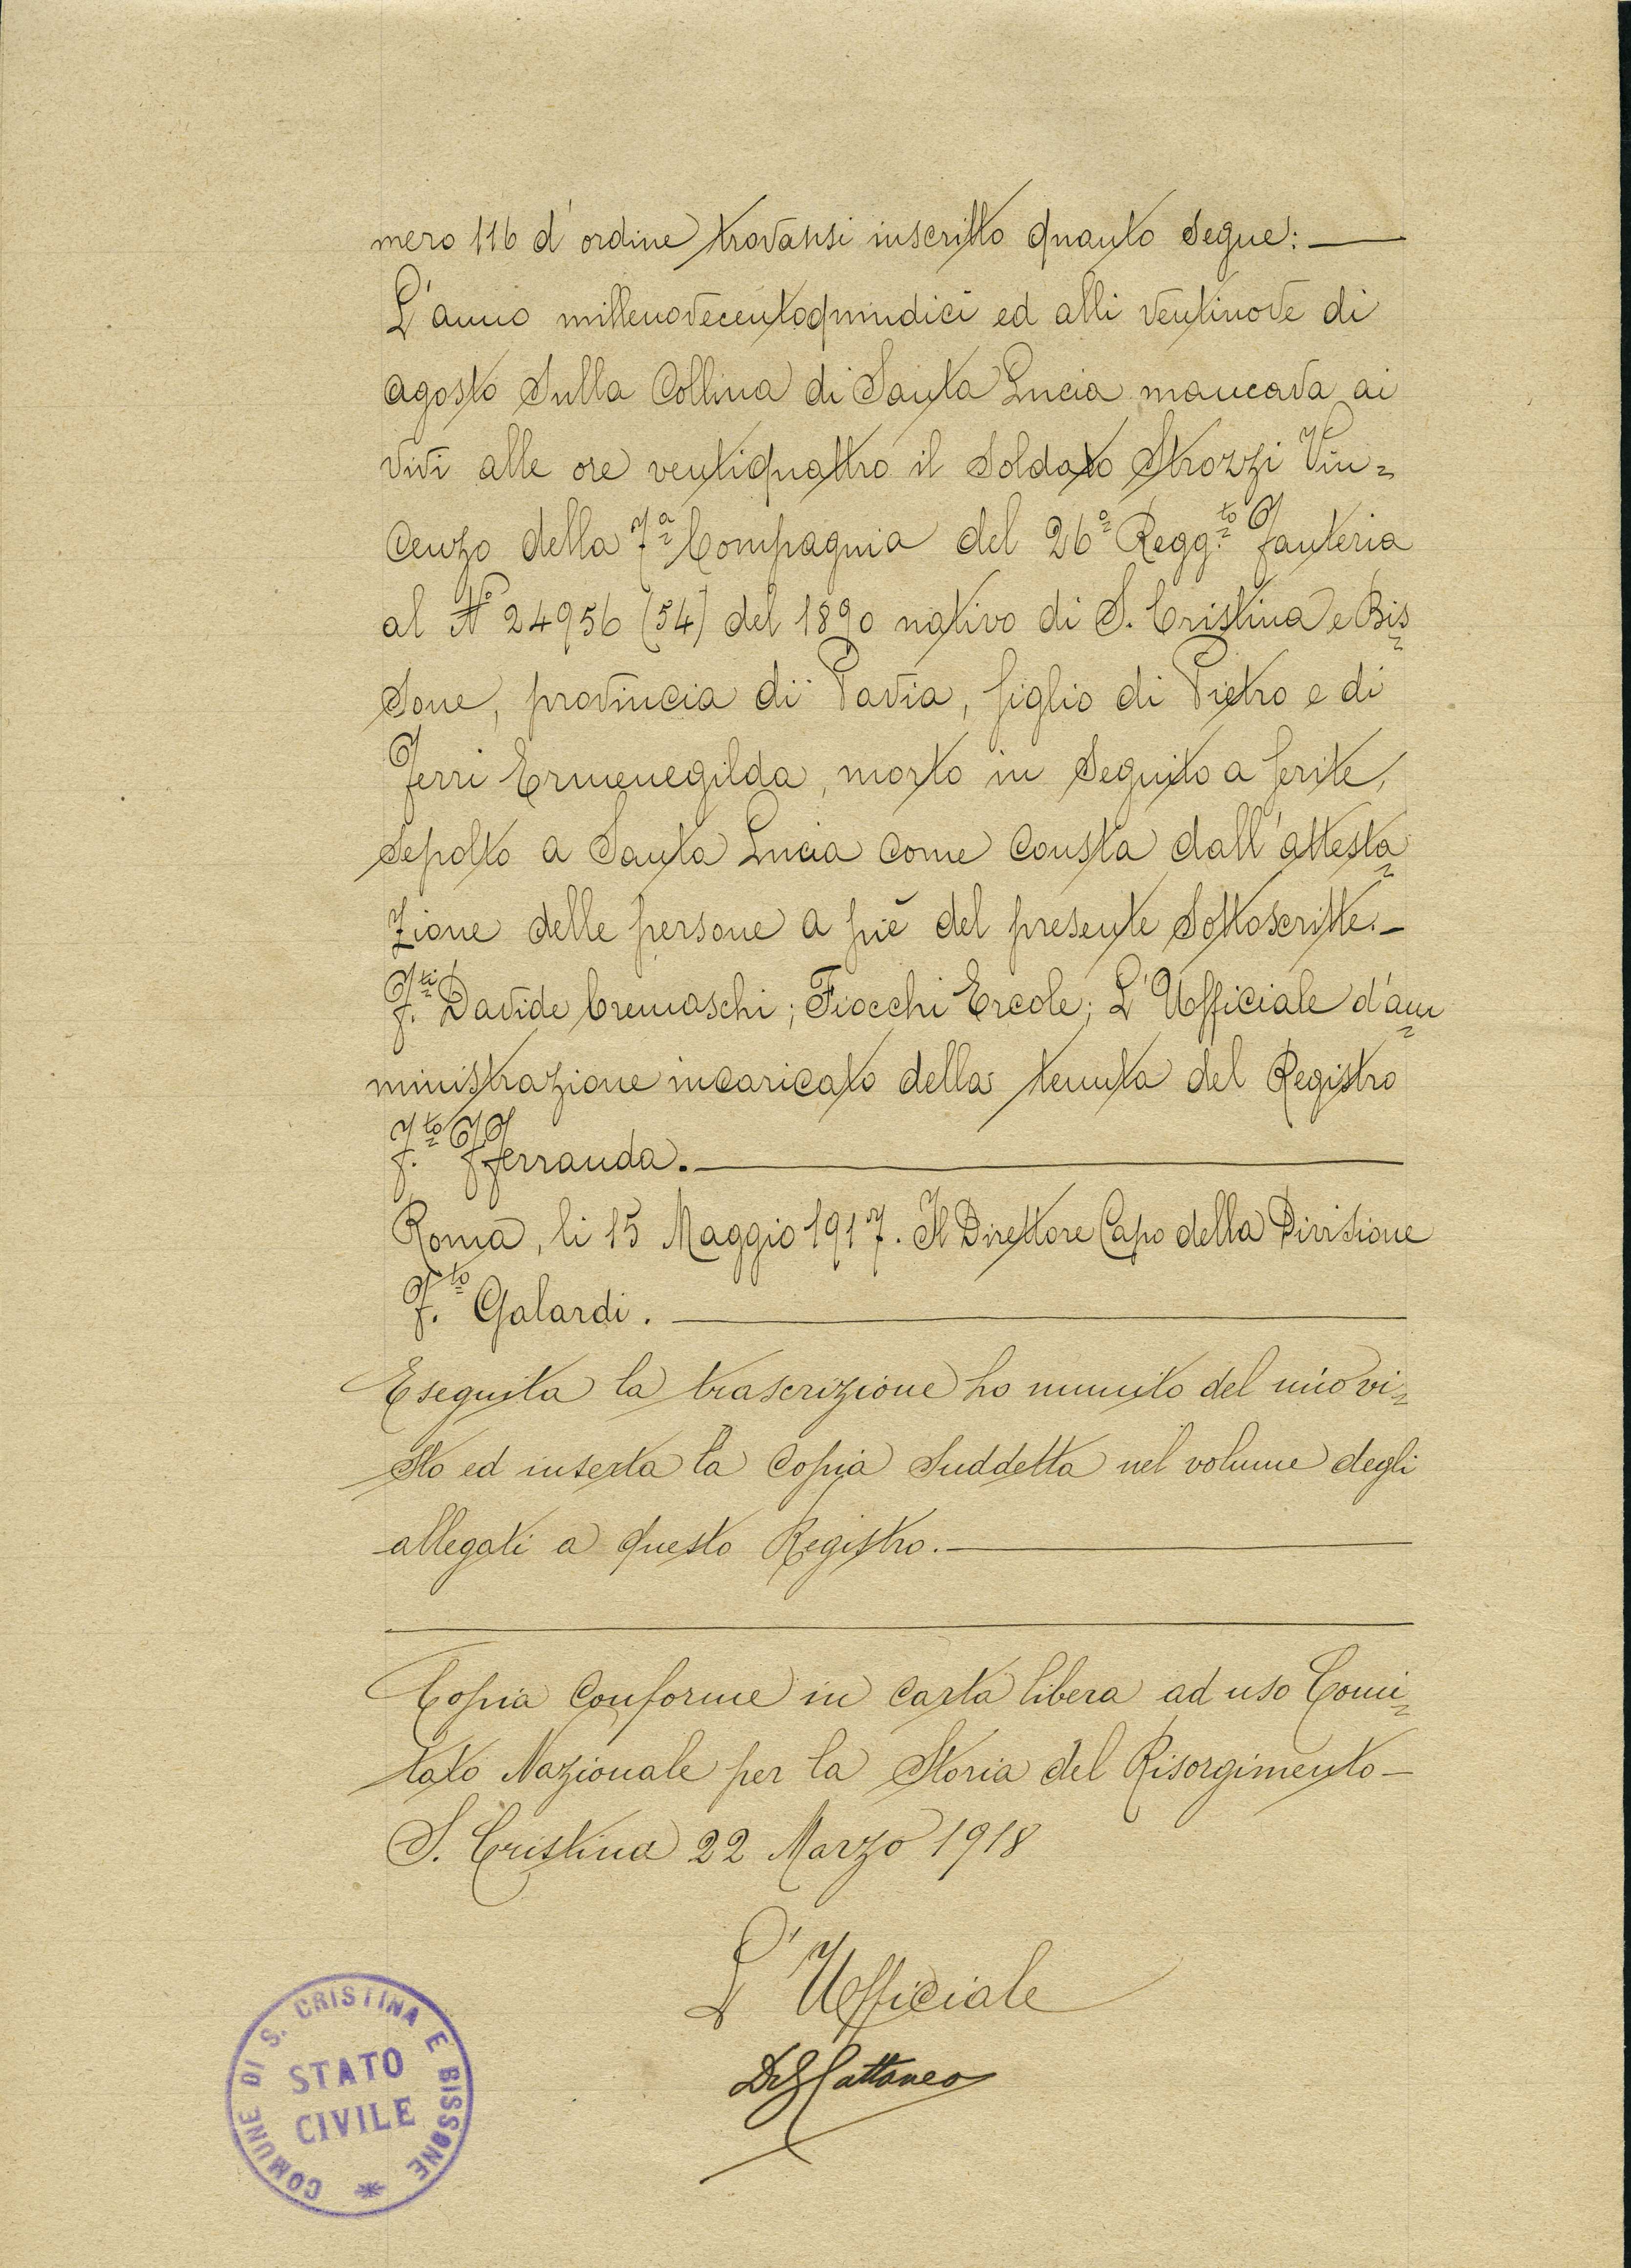 mero 116 d'ordine trovansi inscritto quanto segue:
L'anno millenovecentoquindici ed alli ventinove di
agosto sulla Collina di Santa Lucia mancava ai
vivi alle ore ventiquattro il soldato Strozzi Vin=
cenzo della 7ª Compagnia del 26º Regg.to Fanteria
al Nº 24956 (54) del 1890 nativo di S. Cristina e Bis=
sone, provincia di Pavia, figlio di Pietro e di
Ferri Ermenegilda, morto in seguito a ferite,
sepolto a Santa Lucia come consta dall'attesta=
zione delle persone a piè del presente sottoscritte.-
F.ti Davide Cremaschi; Fiocchi Ercole; L'Ufficiale d'am=
ministrazione incaricato della tenuta del Registro
F.to FFerranda.
Roma, li 15 Maggio 1917. Il Direttore Capo della Divisione
F.to Galardi.
Eseguita la trascrizione ho munito del mio vi=
sto ed inserta la copia suddetta nel volume degli
allegati a questo Registro.
Copia conforme in carta libera ad uso Comi=
tato Nazionale per la Storia del Risorgimento-
S. Cristina 22 Marzo 1918
L'Ufficiale
Cattaneo
COMUNE DI S. CRISTINA E BISSONE
STATO
CIVILE